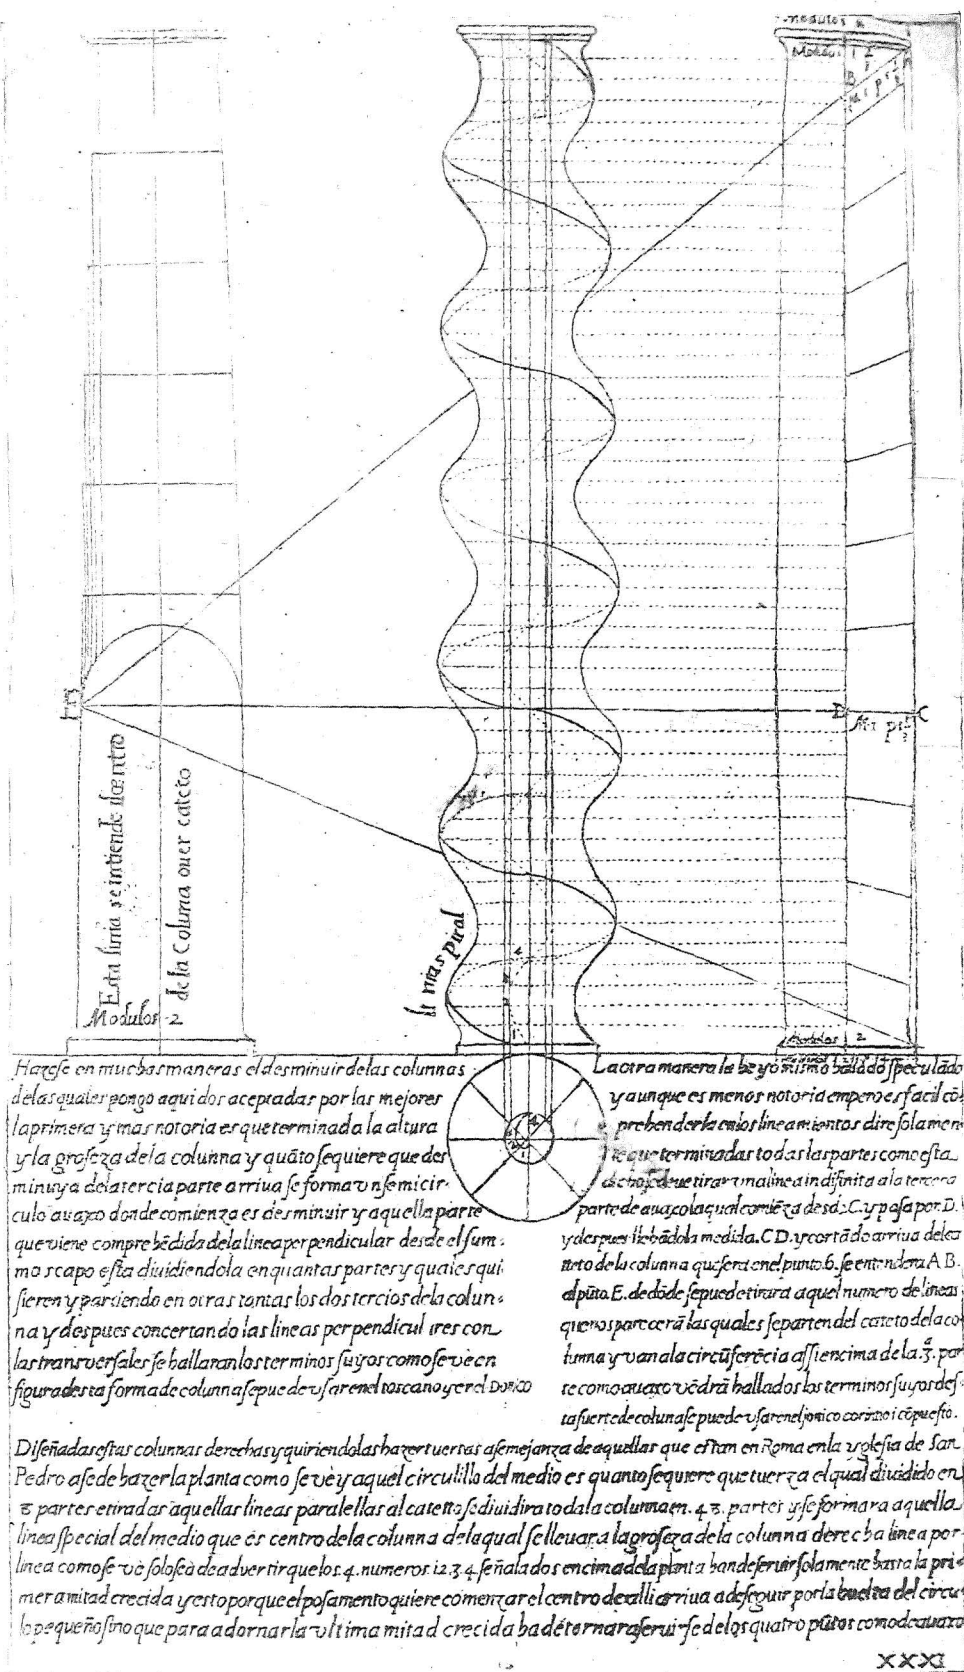 modulos
Modulo 1
B
E
D
C
Esta linia se intiende el centro
de la Coluna ouer cateto
Modulos 2
linia spiral
Modulos 2
Hazese en muchas maneras el desminuir de las colunnas
de las quales pongo aqui dos aceptadas por las mejores
la primera y mas notoria es que terminada la altura
y la groseza de la colunna y quāto se quiere que des
minuya de la tercia parte arriua se forma vn semicir
culo auaxo donde comienza es desminuir y aquella parte
que viene comprebēdida de la linea perpendicular desde el sum
mo scapo esta diuidiendola en quantas partes y quales qui
sieren y partiendo en otras tantas los dos tercios de la colun
na y despues concertando las lineas perpendiculares con
las transversales se hallaran los terminos suyos como se vè en
figura desta forma de colunna se puede vsar en el toscano y en el Dorico
La otra manera la he yo mismo hallado speculādo
y aunque es menos notoria empero es facil cō
prehenderla en los lineamientos dire solamen
te que terminadas todas las partes como esta
dicho se deue tirar vna linea indifinita a la tercera
parte de auaxo la qual comiēza desde .C. y pasa por .D.
y despues llebādo la medida .C D. y cortādo arriua de le ca
teto de la colunna que sera en el punto .6. se entendera A B.
al pūto .E. de dōde se puede tirar a aquel numero de lineas
que nos parecerā las quales se parten del cateto de la co
lunna y van a la circūferēcia assi encima de la .3ª. par
te como auaxo vēdrā hallados los terminos suyos des
ta suerte de coluna se puede vsar en el jonico corintio i cōpuesto.
Diseñadas estas colunnas derechas y quiriendolas hazer tuertas a semejanza de aquellas que estan en Roma en la yglesia de San
Pedro a se de hazer la planta como se vè y aquel circulillo del medio es quanto se quiere que tuerza el qual diuidido en
8 partes e tiradas aquellas lineas paralellas al catetto se diuidira toda la colunna en .48. partes y se formara aquella
linea special del medio que es centro de la colunna de la qual se lleuara la groseza de la colunna derecha linea por
linea como se vè solo se à de advertir que los 4. numeros 1 2. 3. 4. señalados encima de la planta han de seruir solamente hasta la pri
mera mitad crecida y esto porque el posamento quiere comenzar el centro de alli arriua a de seguir por la buelta del circu
lo pequeño sino que para adornar la vltima mitad crecida ha de tornar a serui-se de los quatro pūtos como de auaxo
XXXI